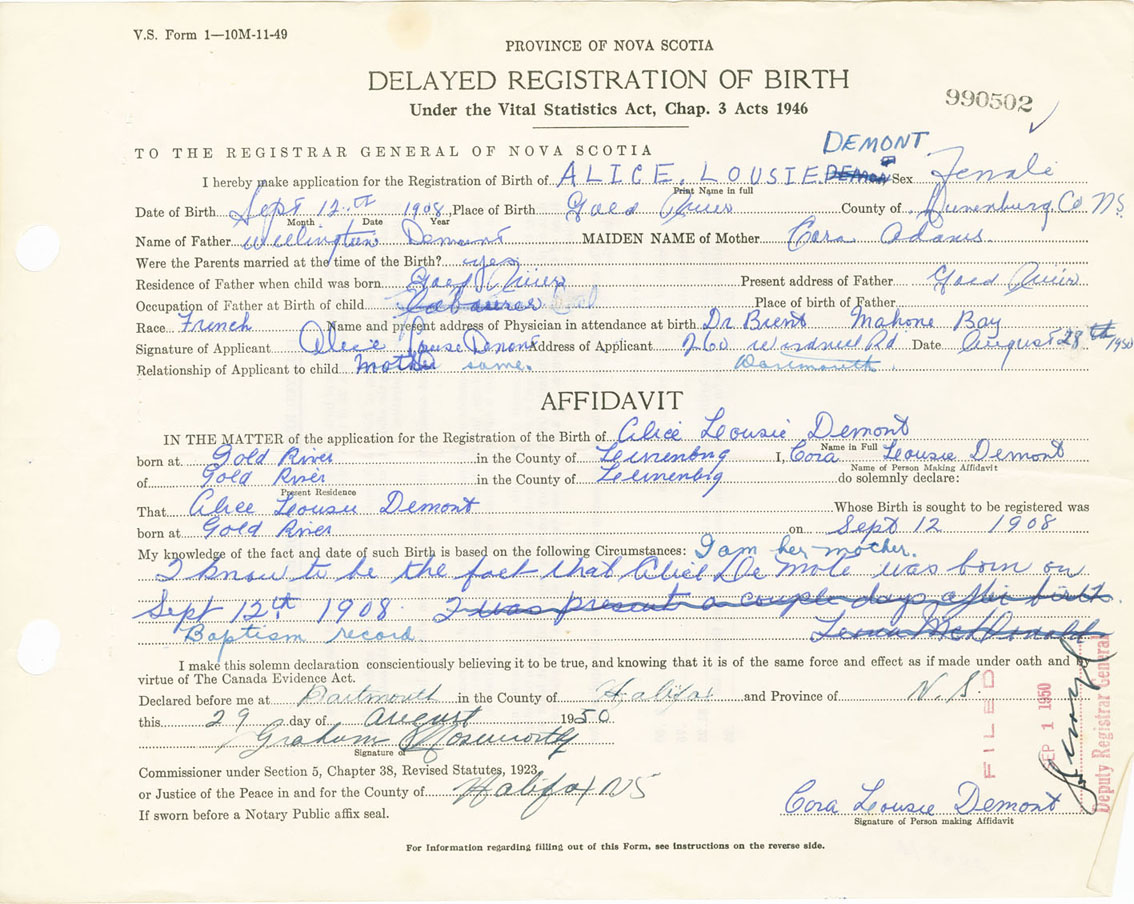 V.S. Form 1—10M-11-49
PROVINCE OF NOVA SCOTIA
DELAYED REGISTRATION OF BIRTH
990502
Under the Vital Statistics Act, Chap. 3 Acts 1946
DEMONT
TO THE REGISTRAR GENERAL OF NOVA SCOTIA
I hereby make application for the Registration of Birth of ALICE. LOUSIE. Sex Female
Print Name in full
Date of Birth Sept 12th 1908, Place of Birth Gold River County of Lunenburg Co NS.
Month Date Year
Name of Father Wellington Demont MAIDEN NAME of Mother Cora Adams.
Were the Parents married at the time of the Birth? yes
Residence of Father when child was born Gold River Present address of Father Gold River
Occupation of Father at Birth of child Labourer Place of birth of Father
Race French Name and present address of Physician in attendance at birth Dr Brent Mahone Bay
Signature of Applicant Alice Lousie Demont Address of Applicant 260 Windmill Rd Date August 28th 1950
Relationship of Applicant to child Mother same. Dartmouth
AFFIDAVIT
IN THE MATTER of the application for the Registration of the Birth of Alice Lousie Demont
Name in Full
born at Gold River in the County of Leunenbrg I, Cora Lousie Demont
Name of Person Making Affidavit
of Gold River in the County of Leunenbrg do solemnly declare:
Present Residence
That Alice Lousie Demont Whose Birth is sought to be registered was
born at Gold River on Sept 12 1908
My knowledge of the fact and date of such Birth is based on the following Circumstances: I am her mother.
I know to be the fact that Alice De Mote was born on
Sept 12th 1908 I was present a couple days after birth.
Baptism record McDonald
I make this solemn declaration conscientiously believing it to be true, and knowing that it is of the same force and effect as if made under oath and by
virtue of The Canada Evidence Act.
Declared before me at Dartmouth in the County of Halifax and Province of N.S.
this 29 day of August 1950
Graham Bosworthy
Signature of
Commissioner under Section 5, Chapter 38, Revised Statutes, 1923,
or Justice of the Peace in and for the County of Halifax NS
If sworn before a Notary Public affix seal.
FILED
SEP 1 1950
Deputy Registrar General
Cora Lousie Demont
Signature of Person making Affidavit
For Information regarding filling out of this Form, see instructions on the reverse side.